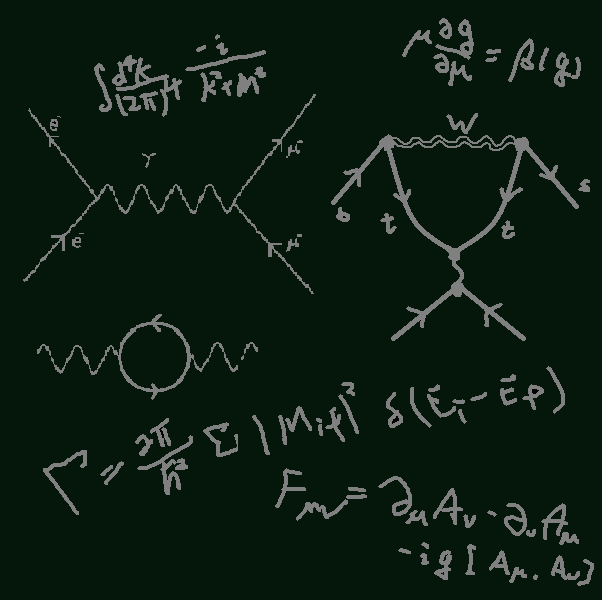 ∫ d⁴k/(2π)⁴ -i/(k²+m²)
μ ∂g/∂μ = β(g)
e⁻
γ
μ⁻
W
e⁻
μ⁻
b
t
t
s
Γ = 2π/ħ² Σ |M_if|² δ(E_i - E_f)
F_μν = ∂_μ A_ν - ∂_ν A_μ
-ig[A_μ, A_ν]